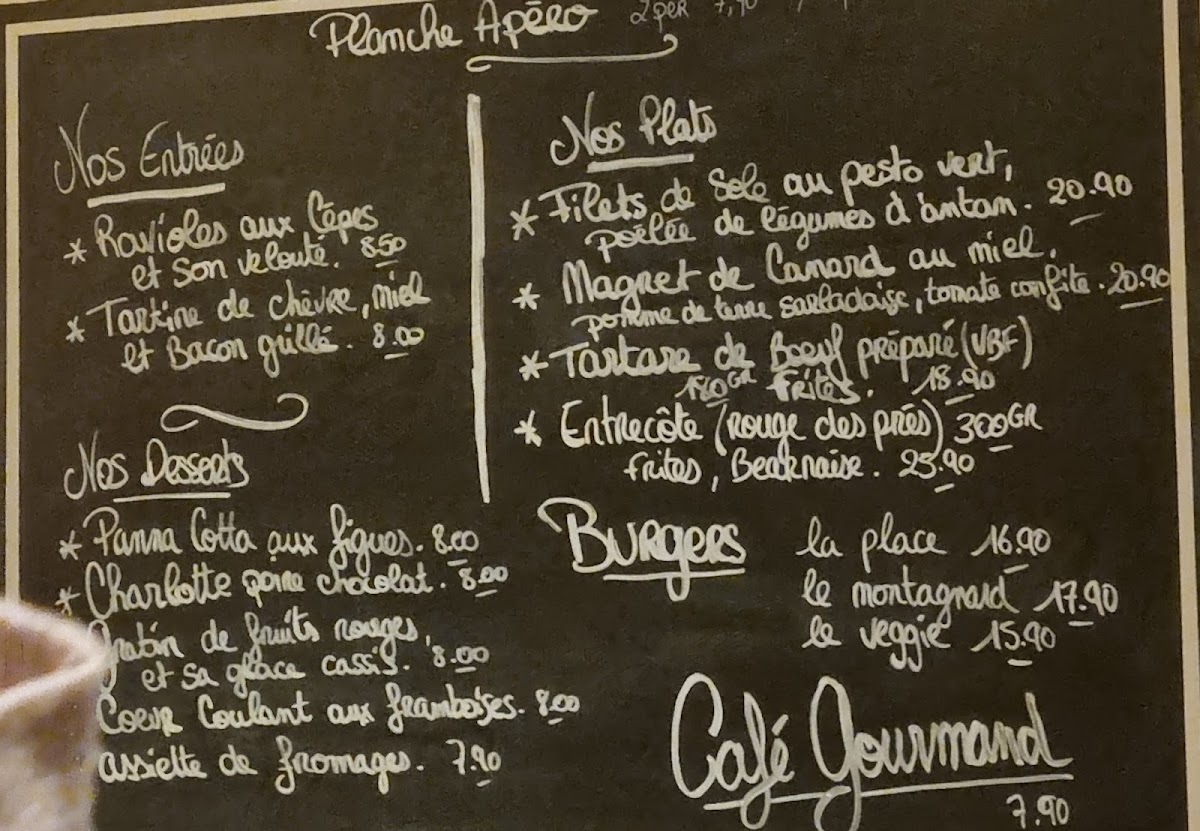 Planche Apéro 2 per 7,90
Nos Entrées
* Ravioles aux Cèpes
et son velouté. 8.50
* Tartine de chèvre, miel
et Bacon grillé. 8.00
Nos Desserts
* Panna Cotta aux figues. 8.00
* Charlotte poire chocolat. 8.00
Gratin de fruits rouges,
et sa glace cassis. 8.00
Coeur Coulant aux framboises. 8.00
assiette de fromages. 7.90
Nos Plats
* Filets de Sole au pesto vert,
poêlée de légumes d'antan. 20.90
* Magret de Canard au miel.
pomme de terre sarladaise, tomate confite. 20.90
* Tartare de Boeuf préparé (VBF)
180GR Frites. 18.90
* Entrecôte (rouge des prés) 300GR
frites, Bearnaise. 25.90
Burgers
la place 16.90
le montagnard 17.90
le veggie 15.90
Café Gourmand
7.90